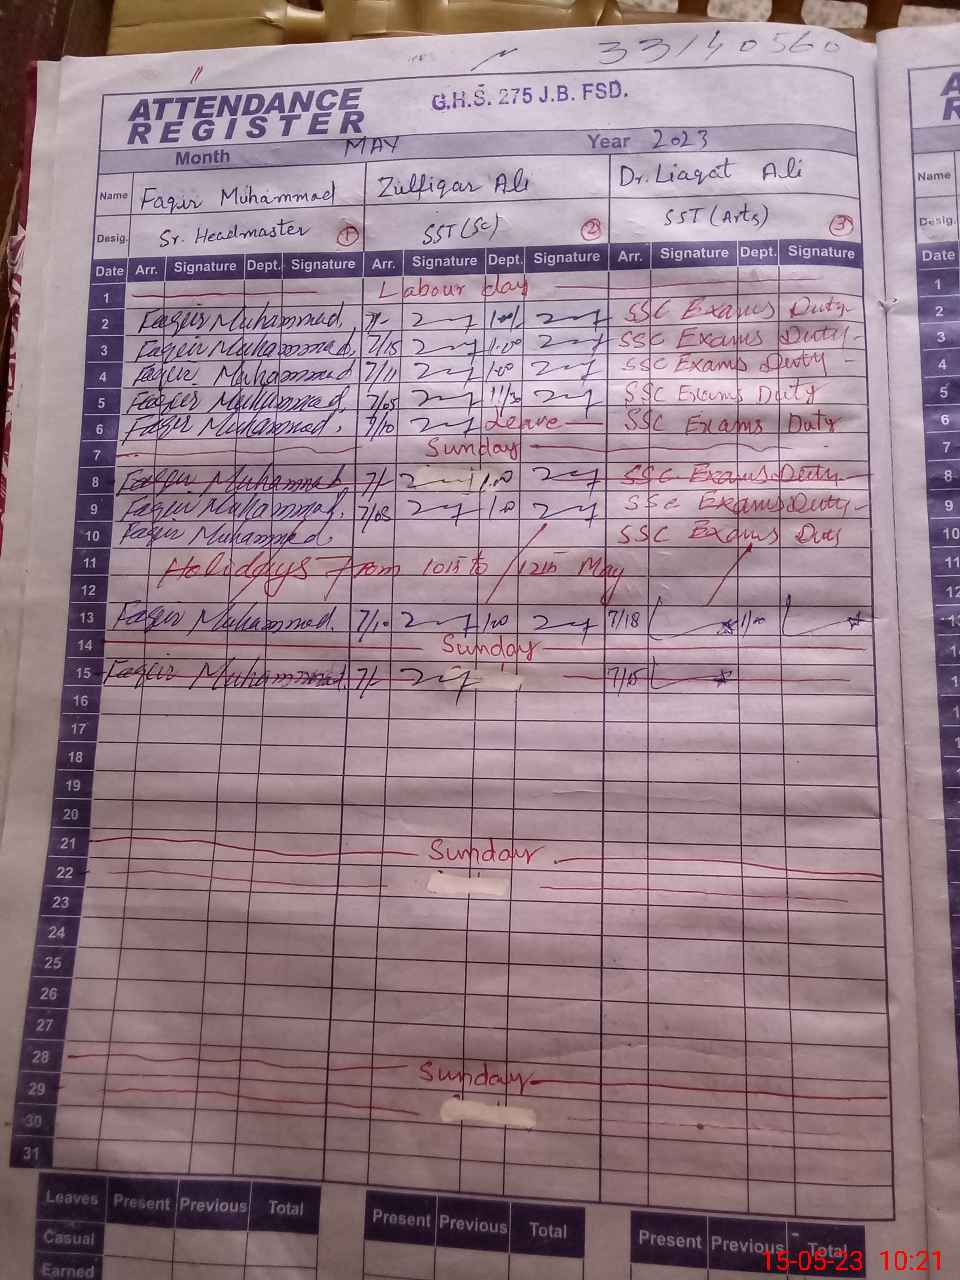 33140560
ATTENDANCE
REGISTER
G.H.S. 275 J.B. FSD.
Month MAY Year 2023
Name Faqir Muhammad Zulfiqar Ali Dr. Liaqat Ali
Desig. Sr. Headmaster 1 SST (Sc) 2 SST (Arts) 3
Date Arr. Signature Dept. Signature Arr. Signature Dept. Signature Arr. Signature Dept. Signature
1 Labour day
2 Faqir Muhammad, SSC Exams Duty
3 Faqir Muhammad, 7/15 1.00 SSC Exams Duty
4 Faqir Muhammad 7/11 1.00 SSC Exams Duty
5 Faqir Muhammad, 7/05 11/30 SSC Exams Duty
6 Faqir Muhammad, 7/10 Leave SSC Exams Duty
7 Sunday
8 Faqir Muhammad 7/- 1.00 SSC Exams Duty
9 Faqir Muhammad, 7/08 1.0 SSC Exams Duty
10 Faqir Muhammad, SSC Exams Duty
11 Holidays From 10th to 12th May
12
13 Faqir Muhammad. 7/10 1.00 7/18 1/00
14 Sunday
15 Faqir Muhammad 7/- 7/15
16
17
18
19
20
21 Sunday
22
23
24
25
26
27
28 Sunday
29
30
31
Leaves Present Previous Total Present Previous Total Present Previous Total
Casual
Earned
Name
Desig.
Date
1
2
3
4
5
6
7
8
9
10
11
12
13
15-05-23 10:21